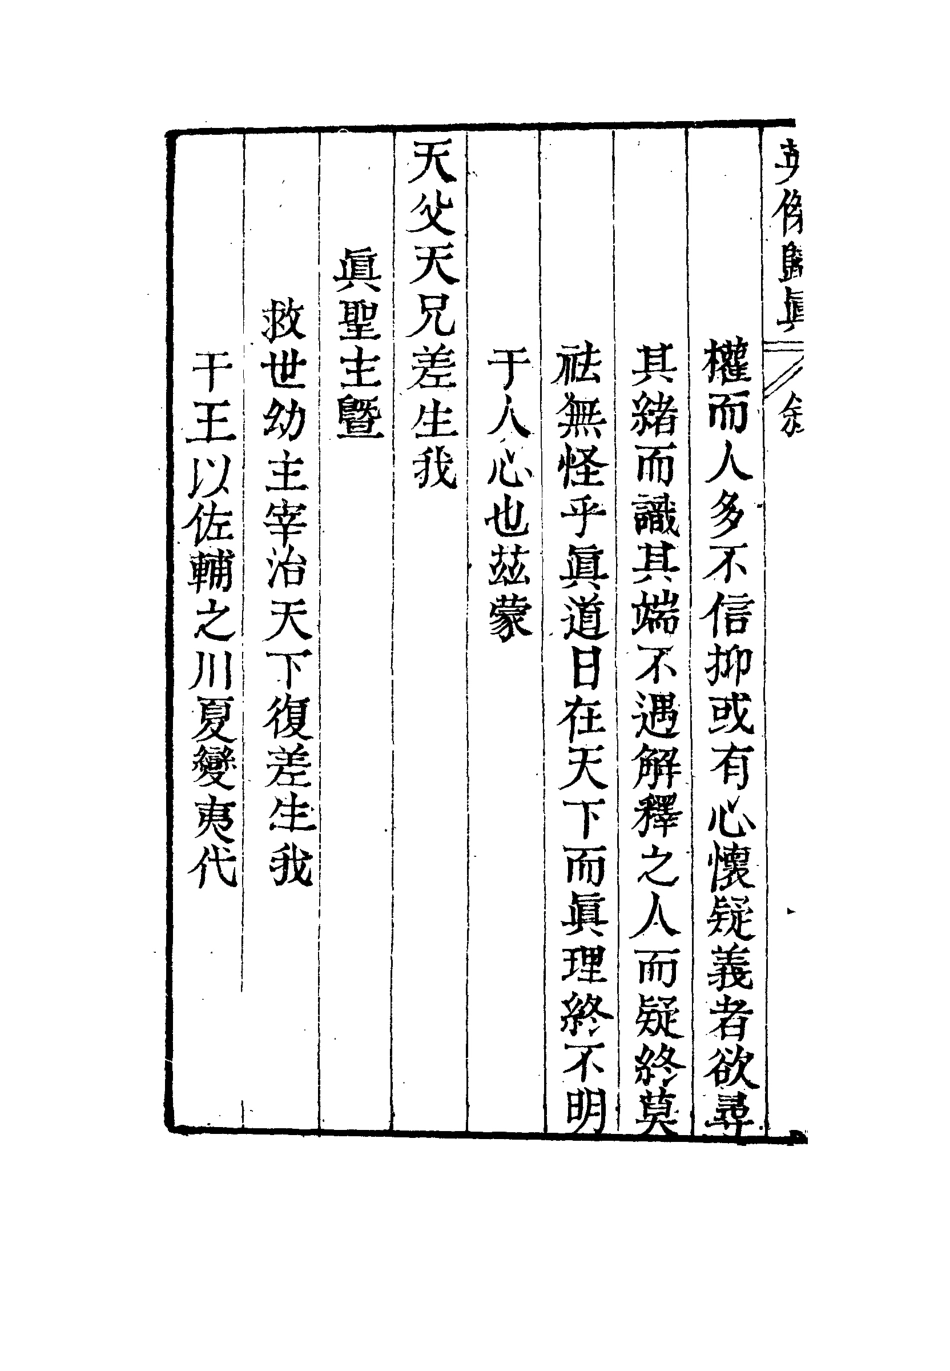 英傑歸眞 敘
權而人多不信抑或有心懷疑義者欲尋
其緒而識其端不遇解釋之人而疑終莫
祛無怪乎眞道日在天下而眞理終不明
于人心也玆蒙
天父天兄差生我
眞聖主曁
救世幼主宰治天下復差生我
干王以佐輔之用夏變夷代